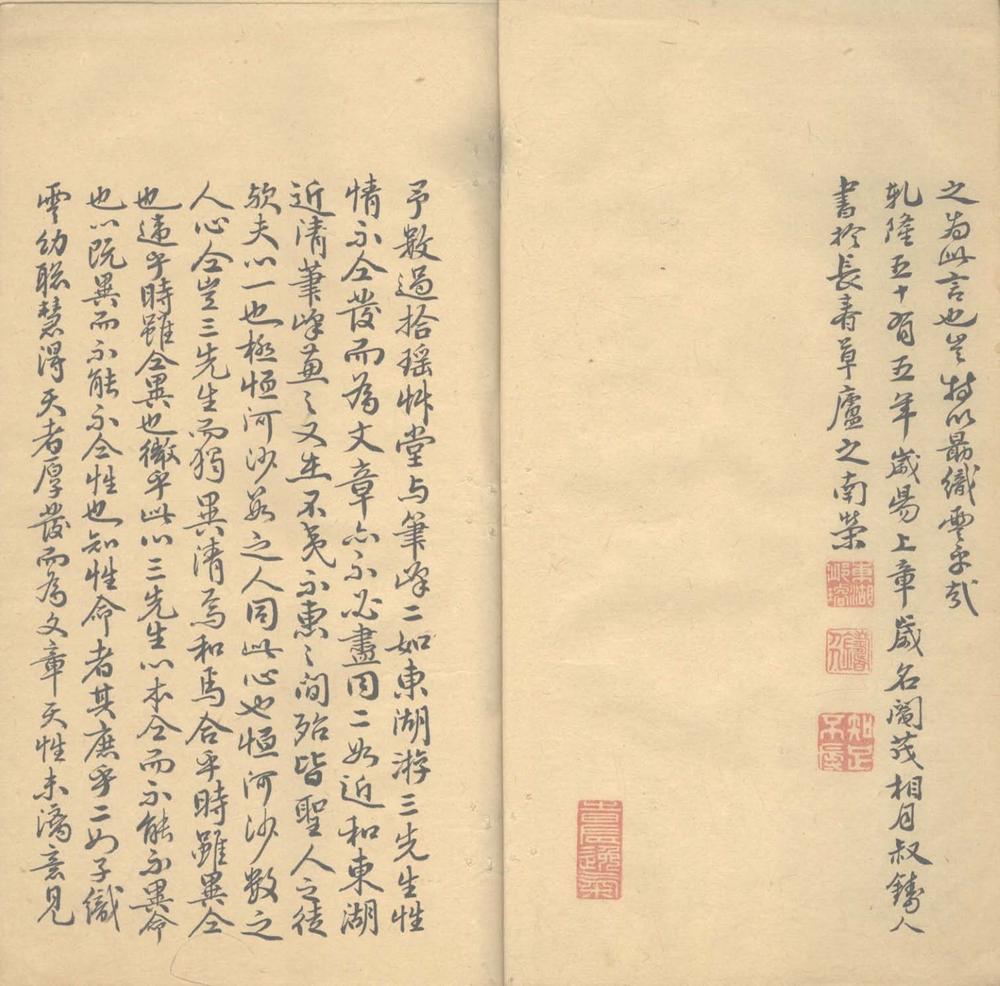 之為此言也豈特以勗織雲乎哉
乾隆五十有五年歲昜上章歲名閹茂相月叔鑄人
書於長壽草廬之南榮
知足不辱
予數過拾瑶艸堂与筆峰二如東湖游三先生性
情不仝發而為文章亦不必盡同二如近和東湖
近清筆峰兼之又在不夷不惠之間殆皆聖人之徒
歟夫心一也極恒河沙數之人同此心也恒河沙數之
人心仝豈三先生而獨異清焉和焉合乎時雖異仝
也違乎時雖仝異也徵乎此心三先生心本仝而不能不異命
也心既異而不能不仝性也知性命者其庶乎二如子織
雲幼聡慧淂天者厚發而為文章天性未漓意見